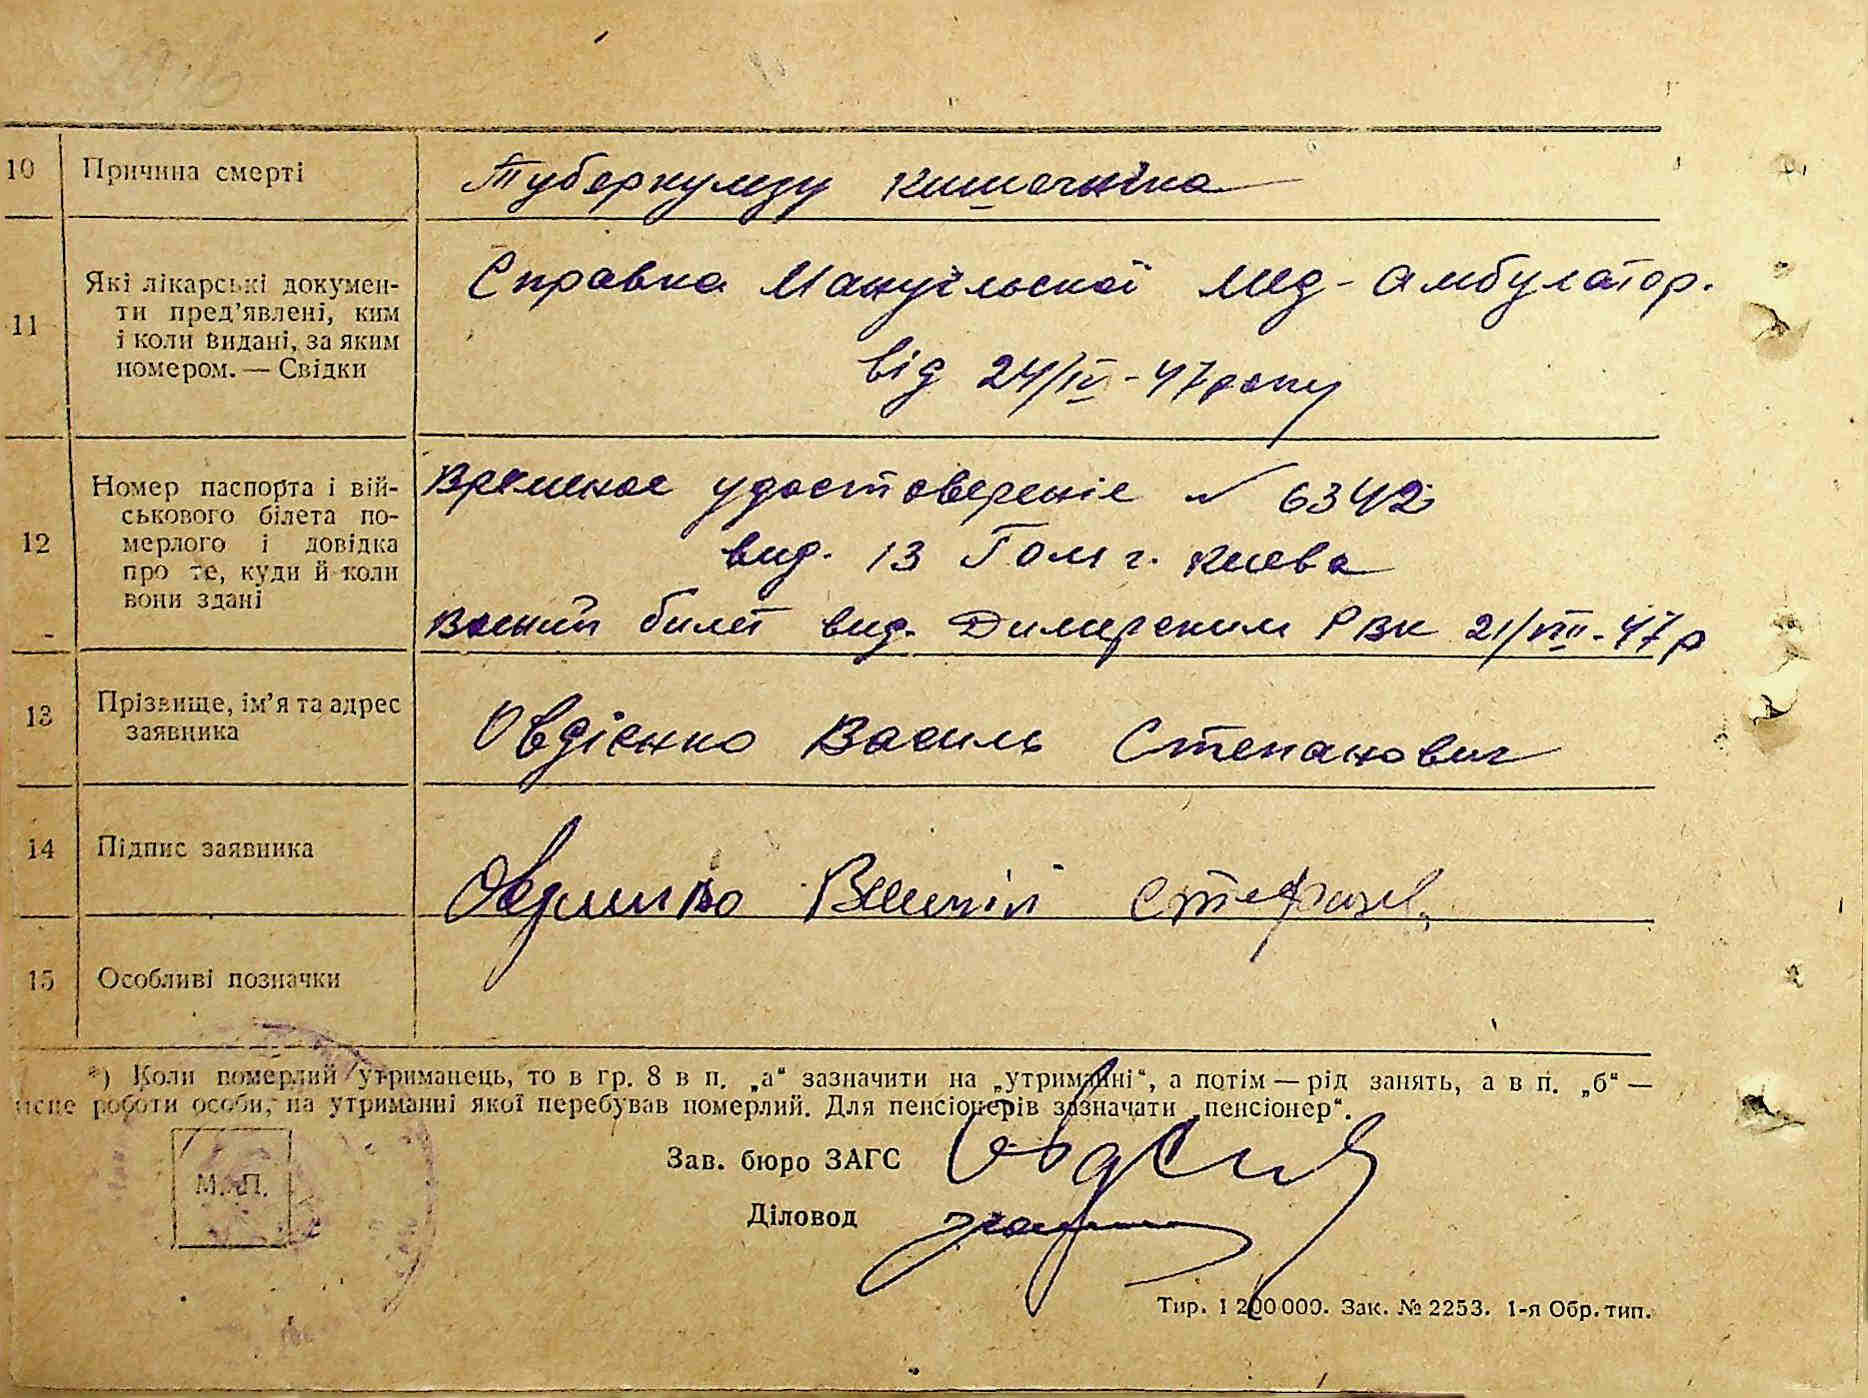 10 Причина смерті Туберкульозу кишечніка
11 Які лікарські докумен-
ти пред’явлені, ким
і коли видані, за яким
номером. — Свідки
Справка Мануїльської Мед-Амбулатор.
від 24/IV-47 року
12 Номер паспорта і вій-
ськового білета по-
мерлого і довідка
про те, куди й коли
вони здані
Временое удостовереніе № 6342
вид. 13 Гом г. Киева
Воений билет вид. Димерским РВК 21/VIII-47р
13 Прізвище, ім’я та адрес
заявника
Овдієнко Василь Степанович
14 Підпис заявника
15 Особливі позначки
*) Коли померлий утриманець, то в гр. 8 в п. „а“ зазначити на „утриманні“, а потім — рід занять, а в п. „б“ —
місце роботи особи, на утриманні якої перебував померлий. Для пенсіонерів зазначати „пенсіонер“.
Зав. бюро ЗАГС
М. П.
Діловод
Тир. 1 200 000. Зак. № 2253. 1-я Обр. тип.